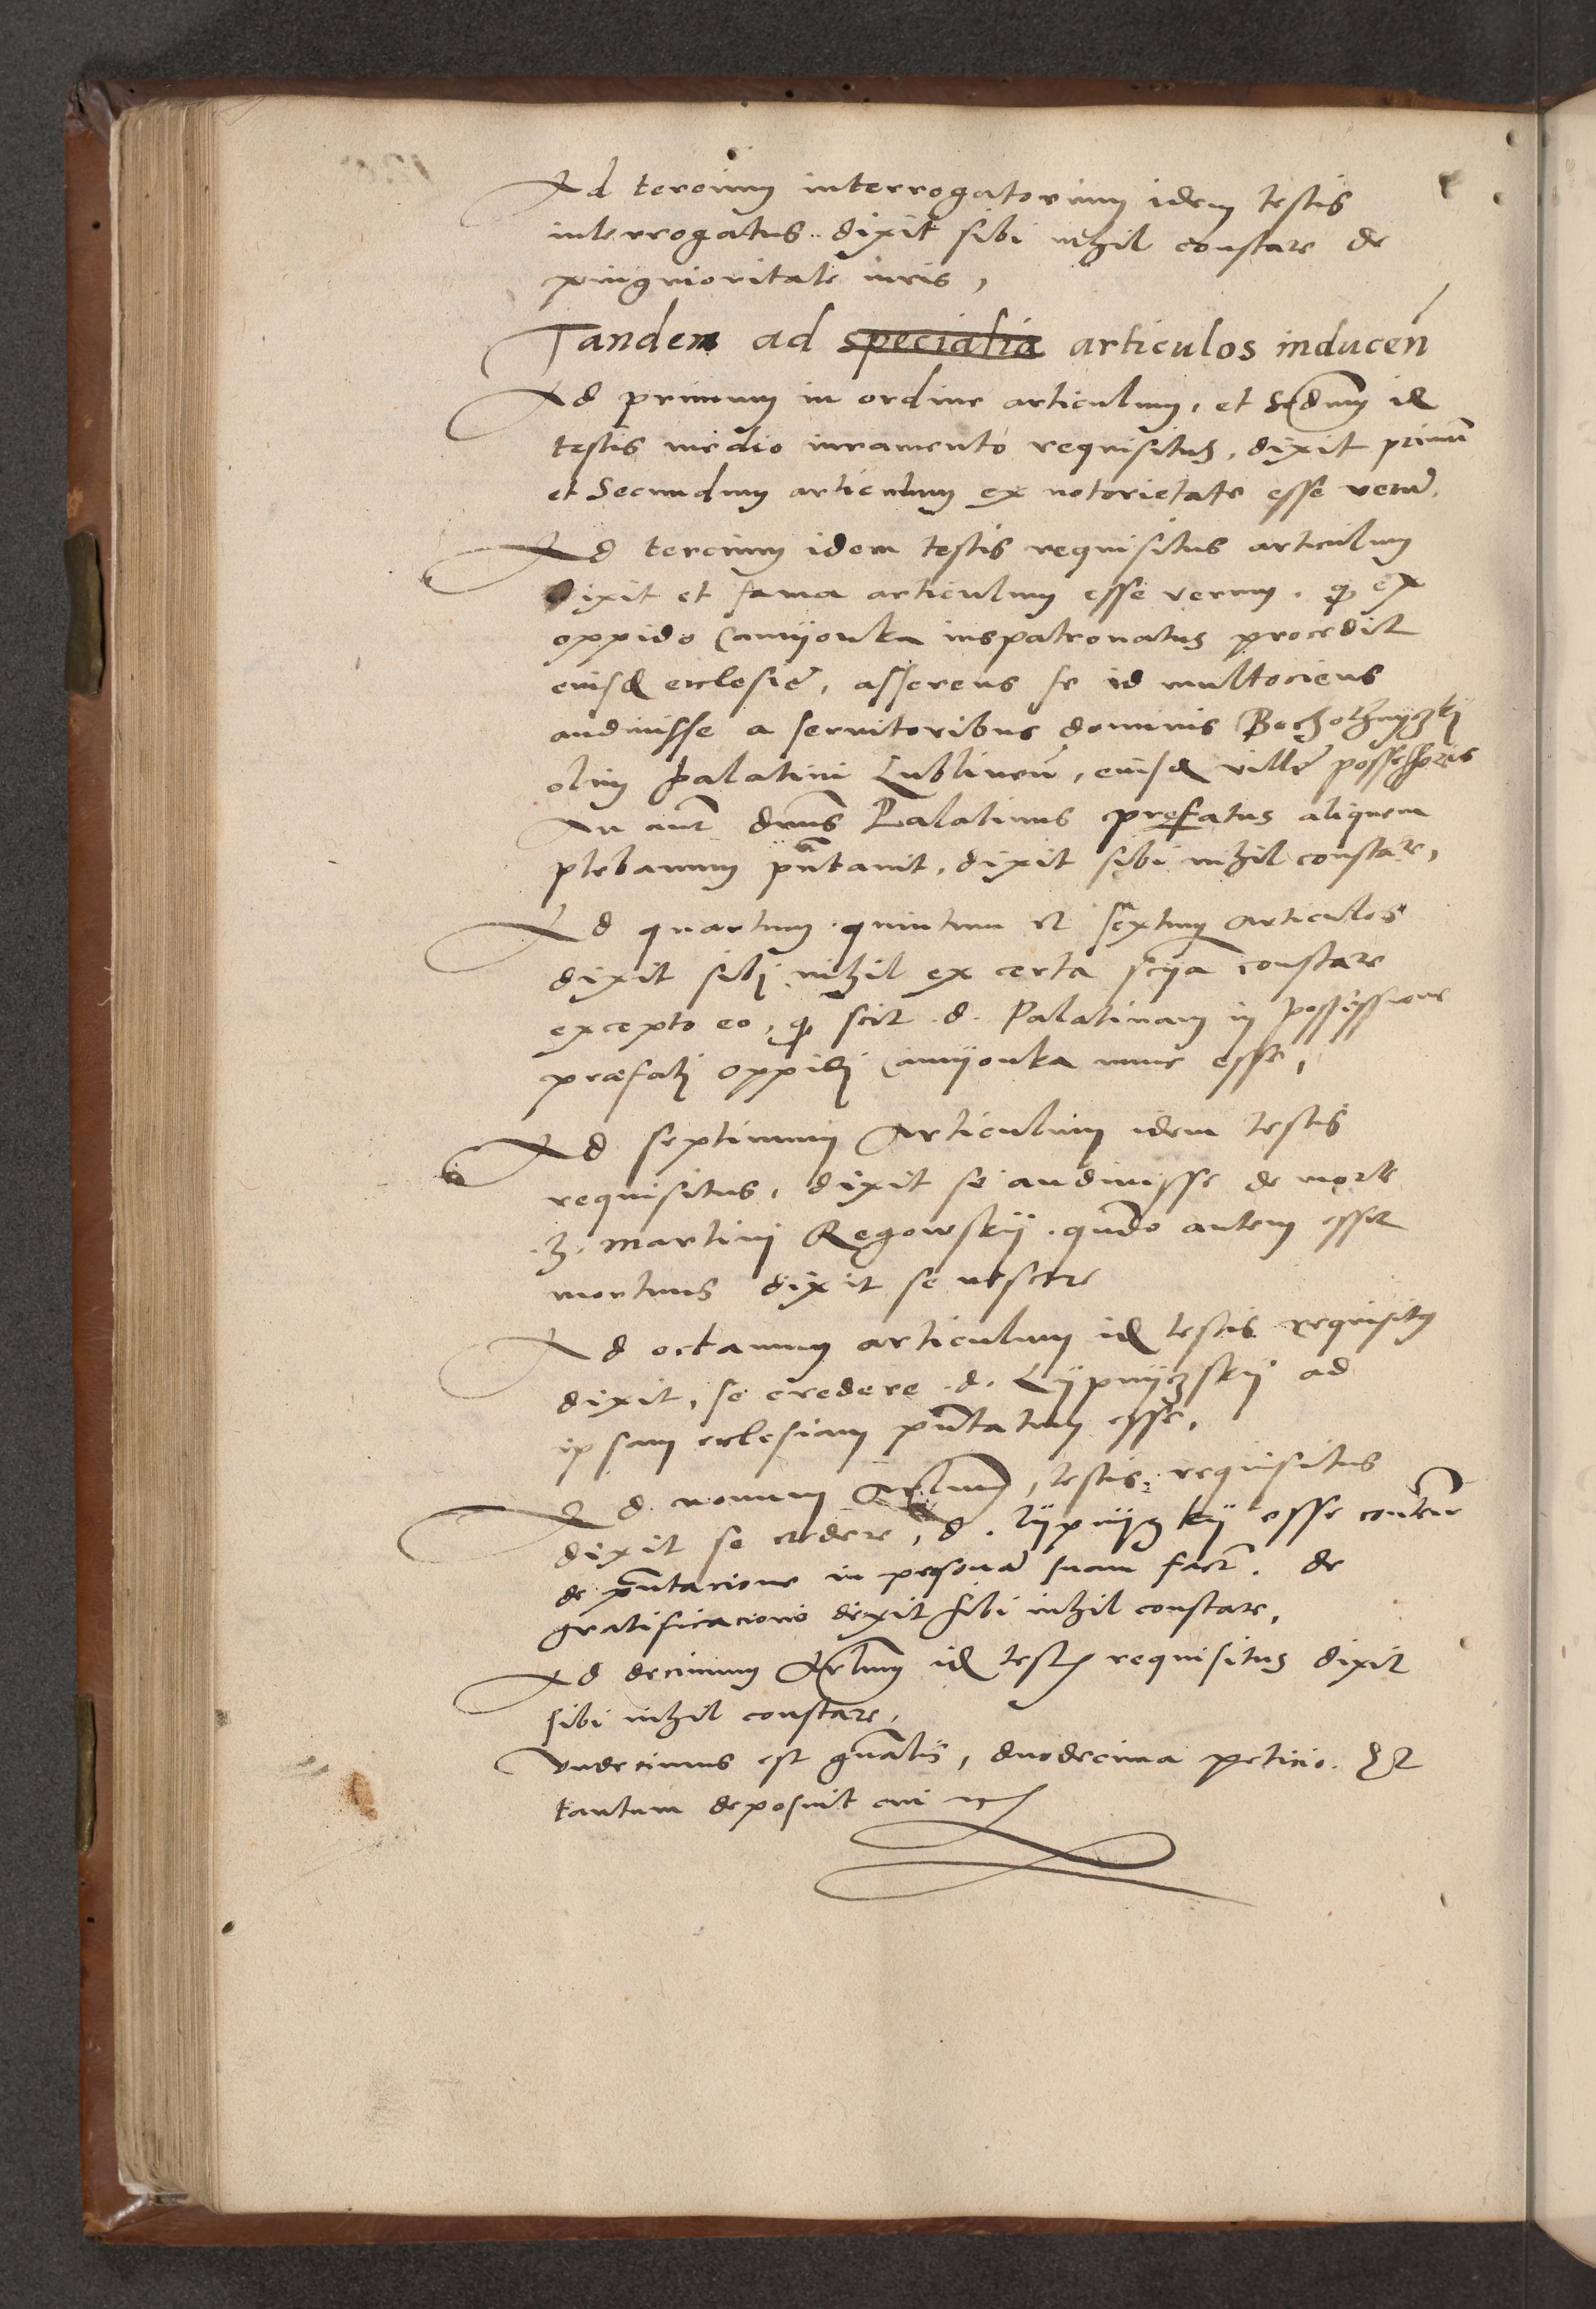 Ad tercium interrogatorium idem testis
interrogatus. dixit sibi nihil constare de
pinguioritate iuris,
Tandem ad specialia articulos inducen̄
Ad primum in ordine articulum, et Scdm id
testis medio iuramento requisitus, dixit primū
et Secundum articulum ex notorietate esse verū.
Ad tercium idem testis requisitus articulum
Dixit et fama articulum esse verum. q ex
oppido Camyonka iuspatronatus procedit
eiusd ecclesie, asserens se id multociens
audiuisse a seruitoribus dominis Bochothnyczkj
olim palatini Lublinen̄, eiusd ville possessoris
An aut dnus Palatinus prefatus aliquem
plebanum pn̄tauit, dixit sibi nihil constare,
Ad quartum quintum et sextum Articulos
dixit sibj nihil ex certa sciia constare
excepto eo, q scit d. Palatinam in possessione
præfatj oppidj Camyonka nunc esse,
Ad septimum Articulum idem testis
requisitus, dixit se audiuisse de morte
Martini Regowskij. qn̄do autem esset
mortuus dixit se nescire
Ad octauum articulum id testis requisitus
dixit, se credere d. Lypnyczskij ad
ipsam ecclesiam pn̄tatum esse,
Ad nonum Arlum, testis requisitus
dixit se credere, d. lypnyczkij esse conten̄
de pn̄tacione in personā suam fact. de
gratificacione dixit sibi nihil constare,
Ad decimum Arlum id testis requisitus dixit
sibi nihil constare,
Vndecimus est gn̄alis, duodecima peticio. Et
tantum deposuit cui etc